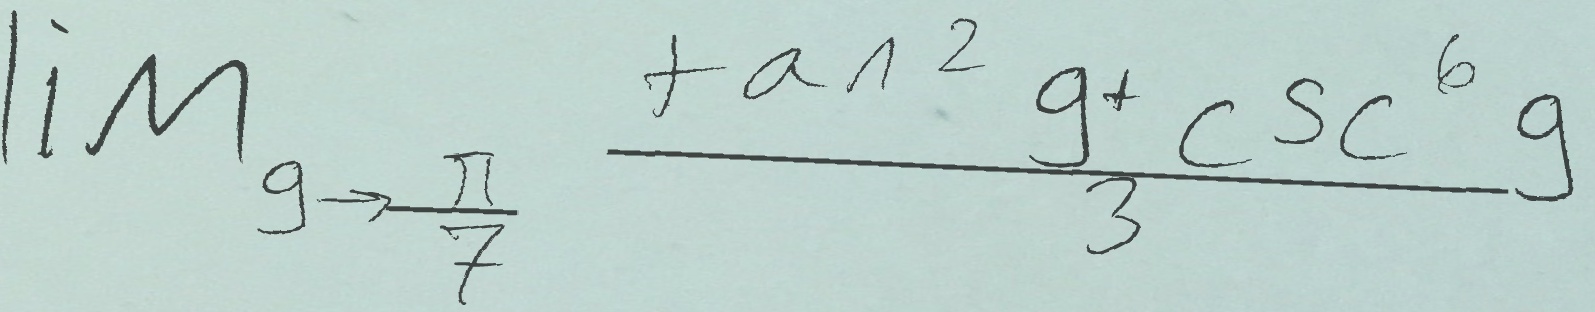 \lim_{g \to \frac{\pi}{7}} \frac{\tan^2 g + \csc^6 g}{3}